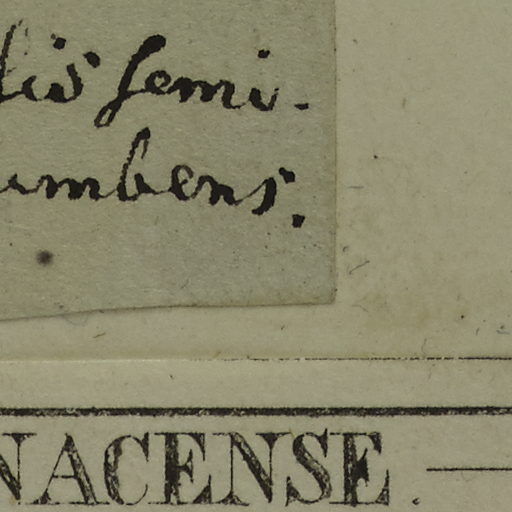 lis semi-
umbens.
NACENSE.